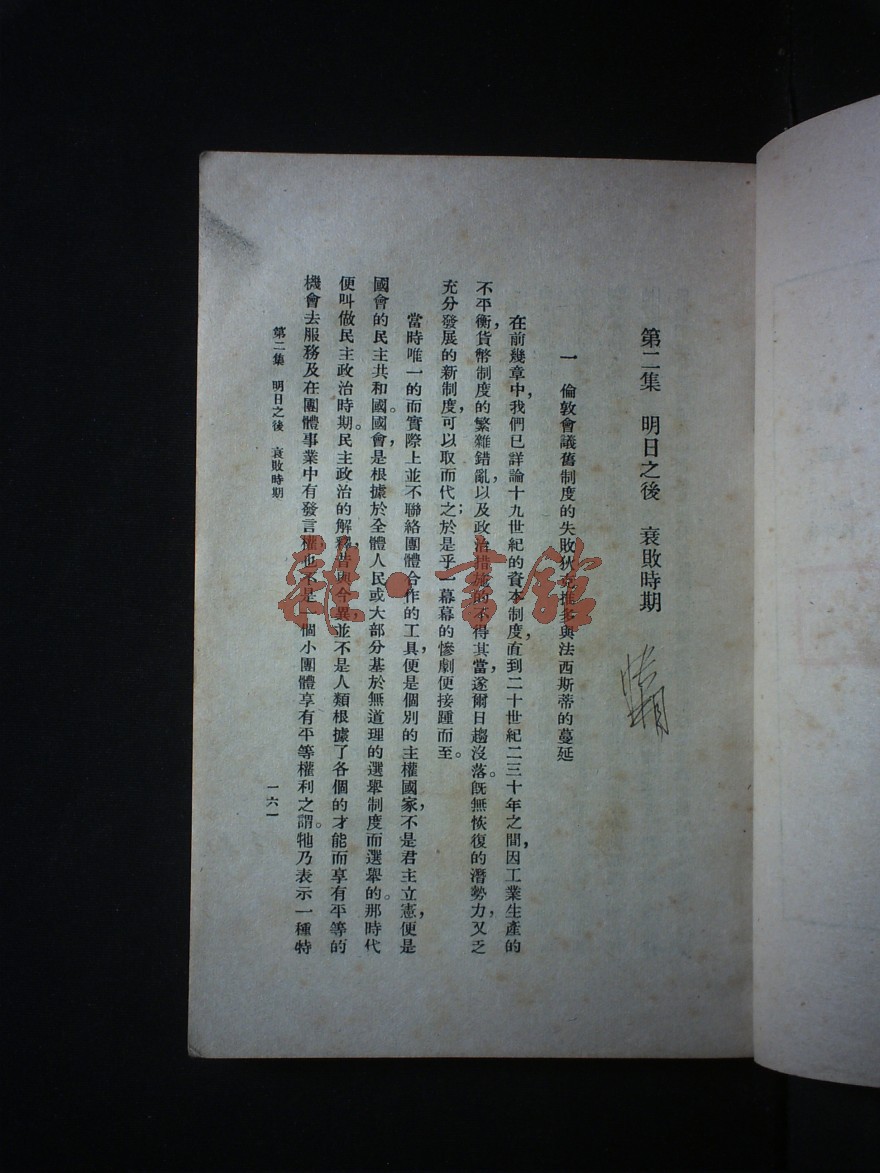 第二集　明日之後　衰敗時期
一　倫敦會議舊制度的失敗狄克推多與法西斯蒂的蔓延
在前幾章中，我們已詳論十九世紀的資本制度，直到二十世紀二三十年之間，因工業生產的
不平衡，貨幣制度的繁雜錯亂，以及政治措施的不得其當，遂爾日趨沒落。旣無恢復的潛勢力，又乏
充分發展的新制度，可以取而代之；於是乎一幕幕的慘劇便接踵而至。
當時唯一的而實際上並不聯絡團體合作的工具，便是個別的主權國家，不是君主立憲，便是
國會的民主共和國。國會，是根據於全體人民或大部分基於無道理的選舉制度而選舉的。那時代
便叫做民主政治時期。民主政治的解釋，昔與今異，並不是人類根據了各個的才能而享有平等的
機會去服務及在團體事業中有發言權，也不是一個小團體享有平等權利之謂。牠乃表示一種特
第二集　明日之後　衰敗時期
一六一
雜·書館